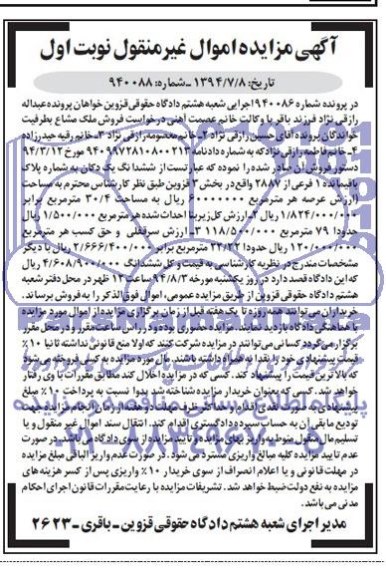 آگهی مزایده اموال غیرمنقول نوبت اول
تاریخ: ۱۳۹۴/۷/۸ ـ شماره: ۹۴۰۰۸۸
در پرونده شماره ۹۴۰۰۸۶ اجرایی شعبه هشتم دادگاه حقوقی قزوین خواهان پرونده عبداله
رازقی نژاد فرزند باقر با وکالت خانم عصمت آهنی درخواست فروش ملک مشاع بطرفیت
خواندگان پرونده آقای حسین رازقی نژاد ۲ـ خانم معصومه رازقی نژاد ۳ـ خانم رقیه حیدرزاده
۴ـ خانم فاطمه رازقی نژاد که به شماره دادنامه ۹۴۰۹۹۷۲۸۱۰۸۰۰۲۱۳ مورخ ۹۴/۳/۱۲
دستور فروش آن صادر شده را نموده که عبارتست از ششدانگ یک دکان به شماره پلاک
باقیمانده ۱ فرعی از ۲۸۸۷ واقع در بخش ۳ قزوین طبق نظر کارشناس محترم به مساحت
(ارزش عرصه هر مترمربع ۶۰۰۰۰۰۰۰ ریال به مساحت ۳۰/۴ مترمربع برابر
۱/۸۲۴/۰۰۰/۰۰۰ ریال ۲ـ ارزش کل زیربنا احداث شده هر مترمربع ۱/۵۰۰/۰۰۰ ریال
حدودا ۷۹ مترمربع ۱۱۸/۵۰۰/۰۰۰ ۳ـ ارزش سرقفلی و حق کسب هر مترمربع
۱۲۰/۰۰۰/۰۰۰ ریال حدودا ۲۲/۲۲ مترمربع برابر ۲/۶۶۶/۴۰۰/۰۰۰ ریال با دیگر
مشخصات مندرج در نظریه کارشناسی به قیمت و کل ششدانگ ۴/۶۰۸/۹۰۰/۰۰۰ ریال
که این دادگاه قصد دارد در روز یکشنبه مورخه ۹۴/۸/۳ ساعت ۱۲ ظهر در محل دفتر شعبه
هشتم دادگاه حقوقی قزوین از طریق مزایده عمومی، اموال فوق الذکر را به فروش برساند.
خریداران می توانند همه روزه تا یک هفته قبل از زمان برگزاری مزایده از اموال مورد مزایده
با هماهنگی دادگاه بازدید نمایند. مزایده حضوری بوده و در راس ساعت مقرر و در محل مقرر
برگزار می گردد کسانی می توانند در مزایده شرکت کنند که اولا منع قانونی نداشته ثانیا ۱۰٪
قیمت پیشنهادی خود را نقدا به همراه داشته باشند. مال مورد مزایده به کسی فروخته می شود
که بالاترین قیمت را پیشنهاد کند. کسی که در مزایده اخلال کند مطابق مقررات با وی رفتار
خواهد شد. کسی که بعنوان خریدار شناخته شد بدوا نسبت به پرداخت ۱۰٪ مبلغ
تودیع مابقی آن به حساب سپرده دادگستری اقدام کند. انتقال سند اموال غیر منقول و یا
تسلیم مال منقول منوط به واریز بهای مزایده و تایید مزایده از سوی دادگاه می باشد. در صورت
عدم تایید مزایده کلیه مبالغ واریزی مسترد می شود. در صورت عدم واریز الباقی مبلغ مزایده
در مهلت قانونی و یا اعلام انصراف از سوی خریدار ۱۰٪ واریزی پس از کسر هزینه های
مزایده به نفع دولت ضبط خواهد شد. تشریفات مزایده با رعایت مقررات قانون اجرای احکام
مدنی می باشد.
مدیر اجرای شعبه هشتم دادگاه حقوقی قزوین ـ باقری ـ ۲۶۲۳